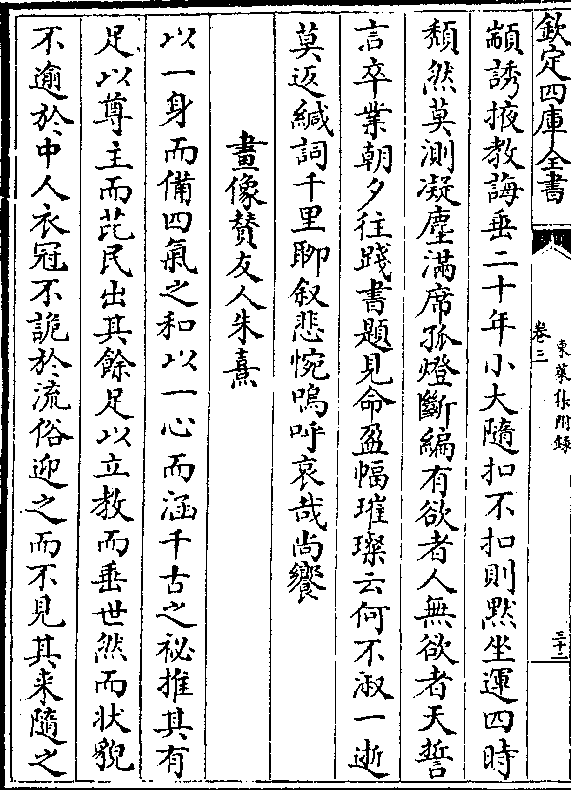 欽定四庫全書
東萊集附録
卷三
三十二
顓誘掖教誨垂二十年小大隨扣不扣則黙坐運四時
頽然莫測凝塵滿席孤燈斷編有欲者人無欲者天誓
言卒業朝夕往踐書題見命盈幅璀璨云何不淑一逝
莫返緘詞千里聊叙悲惋嗚呼哀哉尚饗
畫像賛友人朱熹
以一身而備四氣之和以一心而涵千古之祕推其有
足以尊主而芘民出其餘足以立教而垂世然而状貌
不逾於中人衣冠不詭於流俗迎之而不見其来隨之